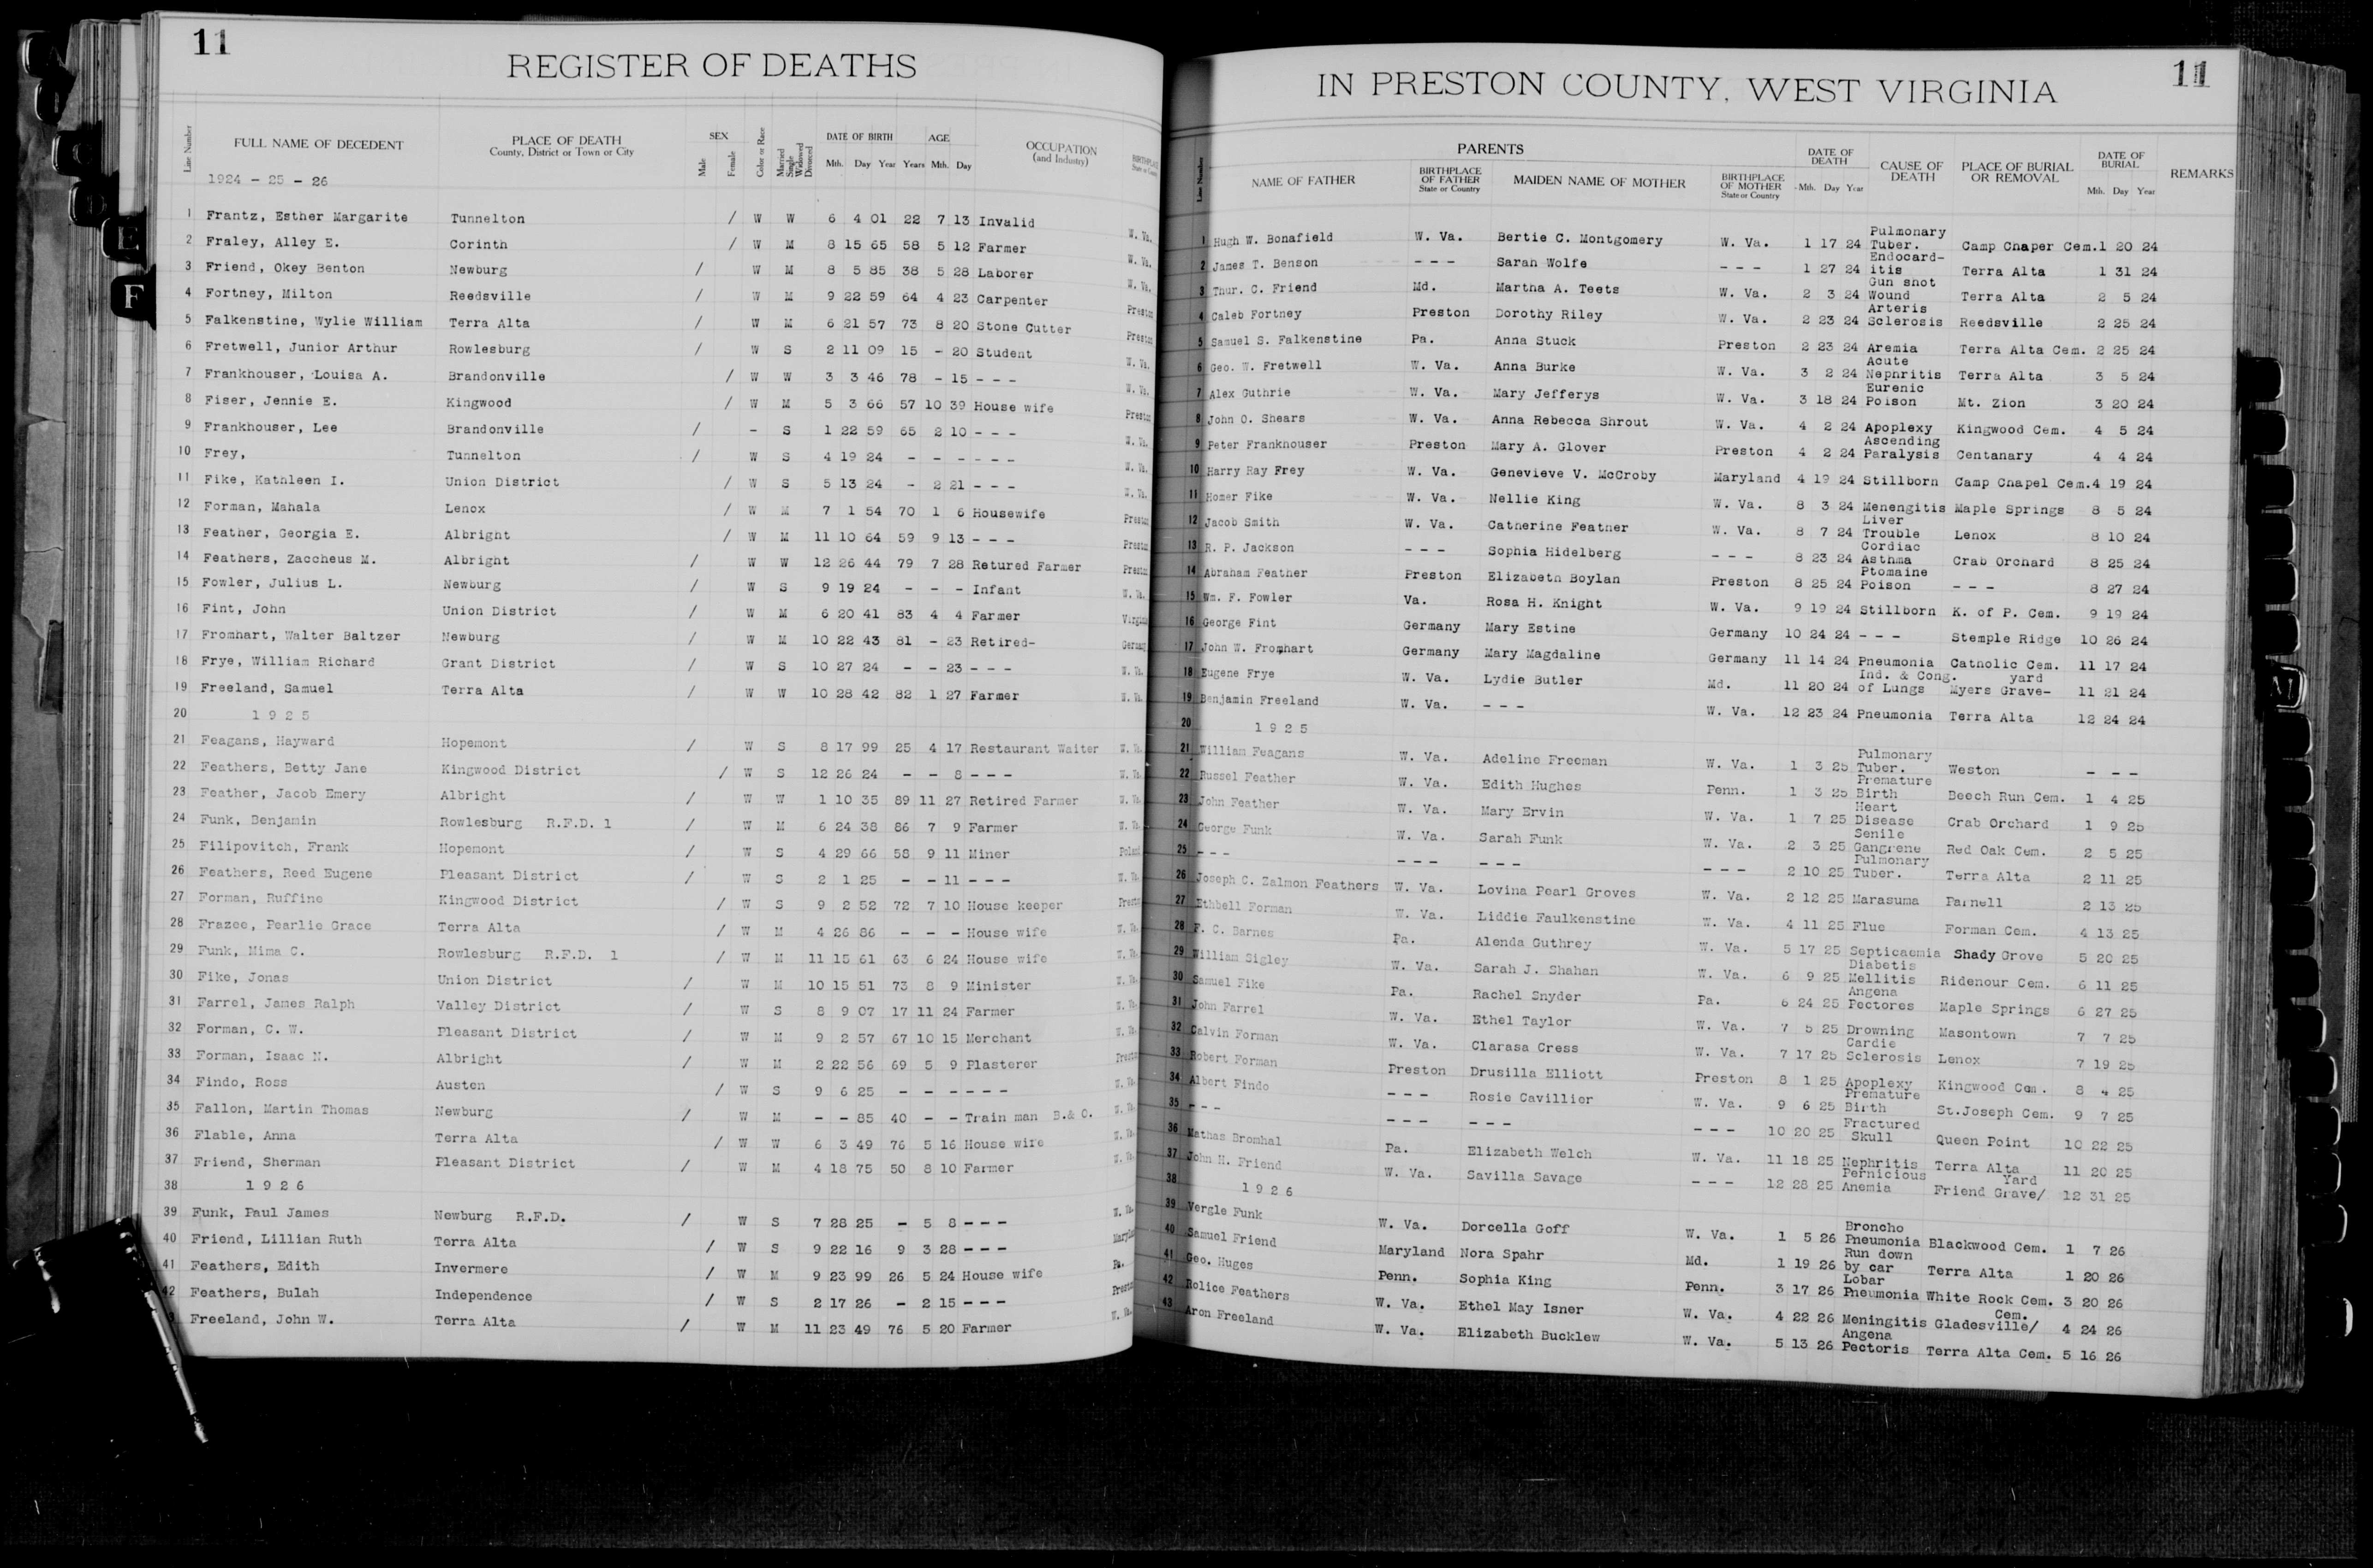 11
REGISTER OF DEATHS
Line Number FULL NAME OF DECEDENT PLACE OF DEATH County, District or Town or City SEX Male Female Color or Race Married Single Widowed Divorced DATE OF BIRTH Mth. Day Year AGE Years Mth. Day OCCUPATION (and Industry) BIRTHPLACE State or County
1924 - 25 - 26
1 Frantz, Esther Margarite Tunnelton / W W 6 4 01 22 7 13 Invalid W. Va.
2 Fraley, Alley E. Corinth / W M 8 15 65 58 5 12 Farmer W. Va.
3 Friend, Okey Benton Newburg / W M 8 5 85 38 5 28 Laborer W. Va.
4 Fortney, Milton Reedsville / W M 9 22 59 64 4 23 Carpenter Preston
5 Falkenstine, Wylie William Terra Alta / W M 6 21 57 73 8 20 Stone Cutter Preston
6 Fretwell, Junior Arthur Rowlesburg / W S 2 11 09 15 - 20 Student W. Va.
7 Frankhouser, Louisa A. Brandonville / W W 3 3 46 78 - 15 - - - W. Va.
8 Fiser, Jennie E. Kingwood / W M 5 3 66 57 10 39 House wife Preston
9 Frankhouser, Lee Brandonville / - S 1 22 59 65 2 10 - - - W. Va.
10 Frey, Tunnelton / W S 4 19 24 - - - - - - W. Va.
11 Fike, Kathleen I. Union District / W S 5 13 24 - 2 21 - - - W. Va.
12 Forman, Mahala Lenox / W M 7 1 54 70 1 6 Housewife Preston
13 Feather, Georgia E. Albright / W M 11 10 64 59 9 13 - - - Preston
14 Feathers, Zaccheus M. Albright / W W 12 26 44 79 7 28 Retured Farmer Preston
15 Fowler, Julius L. Newburg / W S 9 19 24 - - - Infant W. Va.
16 Fint, John Union District / W M 6 20 41 83 4 4 Farmer Virginia
17 Fromhart, Walter Baltzer Newburg / W M 10 22 43 81 - 23 Retired- Germany
18 Frye, William Richard Grant District / W S 10 27 24 - - 23 - - - W. Va.
19 Freeland, Samuel Terra Alta / W W 10 28 42 82 1 27 Farmer W. Va.
20 1925
21 Feagans, Hayward Hopemont / W S 8 17 99 25 4 17 Restaurant Waiter W. Va.
22 Feathers, Betty Jane Kingwood District / W S 12 26 24 - - 8 - - - W. Va.
23 Feather, Jacob Emery Albright / W W 1 10 35 89 11 27 Retired Farmer W. Va.
24 Funk, Benjamin Rowlesburg R.F.D. 1 / W M 6 24 38 86 7 9 Farmer W. Va.
25 Filipovitch, Frank Hopemont / W S 4 29 66 58 9 11 Miner Poland
26 Feathers, Reed Eugene Pleasant District / W S 2 1 25 - - 11 - - - W. Va.
27 Forman, Ruffine Kingwood District / W S 9 2 52 72 7 10 House keeper Preston
28 Frazee, Pearlie Grace Terra Alta / W M 4 26 86 - - - House wife W. Va.
29 Funk, Mima C. Rowlesburg R.F.D. 1 / W M 11 15 61 63 6 24 House wife W. Va.
30 Fike, Jonas Union District / W M 10 15 51 73 8 9 Minister W. Va.
31 Farrel, James Ralph Valley District / W S 8 9 07 17 11 24 Farmer W. Va.
32 Forman, C. W. Pleasant District / W M 9 2 57 67 10 15 Merchant W. Va.
33 Forman, Isaac N. Albright / W M 2 22 56 69 5 9 Plasterer Preston
34 Findo, Ross Austen / W S 9 6 25 - - - - - - W. Va.
35 Fallon, Martin Thomas Newburg / W M - - 85 40 - - Train man B.& O. W. Va.
36 Flable, Anna Terra Alta / W W 6 3 49 76 5 16 House wife W. Va.
37 Friend, Sherman Pleasant District / W M 4 18 75 50 8 10 Farmer W. Va.
38 1926
39 Funk, Paul James Newburg R.F.D. / W S 7 28 25 - 5 8 - - - W. Va.
40 Friend, Lillian Ruth Terra Alta / W S 9 22 16 9 3 28 - - - Maryland
41 Feathers, Edith Invermere / W M 9 23 99 26 5 24 House wife Pa.
42 Feathers, Bulah Independence / W S 2 17 26 - 2 15 - - - Preston
3 Freeland, John W. Terra Alta / W M 11 23 49 76 5 20 Farmer W. Va.
IN PRESTON COUNTY, WEST VIRGINIA
11
Line Number PARENTS NAME OF FATHER BIRTHPLACE OF FATHER State or Country MAIDEN NAME OF MOTHER BIRTHPLACE OF MOTHER State or Country DATE OF DEATH Mth. Day Year CAUSE OF DEATH PLACE OF BURIAL OR REMOVAL DATE OF BURIAL Mth. Day Year REMARKS
1 Hugh W. Bonafield W. Va. Bertie C. Montgomery W. Va. 1 17 24 Pulmonary Tuber. Camp Chaper Cem. 1 20 24
2 James T. Benson - - - Sarah Wolfe - - - 1 27 24 Endocard-itis Terra Alta 1 31 24
3 Thur. C. Friend Md. Martha A. Teets W. Va. 2 3 24 Gun shot Wound Terra Alta 2 5 24
4 Caleb Fortney Preston Dorothy Riley W. Va. 2 23 24 Arteris Sclerosis Reedsville 2 25 24
5 Samuel S. Falkenstine Pa. Anna Stuck Preston 2 23 24 Aremia Terra Alta Cem. 2 25 24
6 Geo. W. Fretwell W. Va. Anna Burke W. Va. 3 2 24 Acute Nephritis Terra Alta 3 5 24
7 Alex Guthrie W. Va. Mary Jefferys W. Va. 3 18 24 Eurenic Poison Mt. Zion 3 20 24
8 John O. Shears W. Va. Anna Rebecca Shrout W. Va. 4 2 24 Apoplexy Kingwood Cem. 4 5 24
9 Peter Frankhouser Preston Mary A. Glover Preston 4 2 24 Ascending Paralysis Centanary 4 4 24
10 Harry Ray Frey W. Va. Genevieve V. McCroby Maryland 4 19 24 Stillborn Camp Chapel Cem. 4 19 24
11 Homer Fike W. Va. Nellie King W. Va. 8 3 24 Menengitis Maple Springs 8 5 24
12 Jacob Smith W. Va. Catherine Feather W. Va. 8 7 24 Liver Trouble Lenox 8 10 24
13 R. P. Jackson - - - Sophia Hidelberg - - - 8 23 24 Cordiac Asthma Crab Orchard 8 25 24
14 Abraham Feather Preston Elizabeth Boylan Preston 8 25 24 Ptomaine Poison - - - 8 27 24
15 Wm. F. Fowler Va. Rosa H. Knight W. Va. 9 19 24 Stillborn K. of P. Cem. 9 19 24
16 George Fint Germany Mary Estine Germany 10 24 24 - - - Stemple Ridge 10 26 24
17 John W. Fromhart Germany Mary Magdaline Germany 11 14 24 Pneumonia Catholic Cem. 11 17 24
18 Eugene Frye W. Va. Lydie Butler Md. 11 20 24 Ind. & Cong. of Lungs Myers Grave-yard 11 21 24
19 Benjamin Freeland W. Va. - - - W. Va. 12 23 24 Pneumonia Terra Alta 12 24 24
20 1925
21 William Feagans W. Va. Adeline Freeman W. Va. 1 3 25 Pulmonary Tuber. Weston - - -
22 Russel Feather W. Va. Edith Hughes Penn. 1 3 25 Premature Birth Beech Run Cem. 1 4 25
23 John Feather W. Va. Mary Ervin W. Va. 1 7 25 Heart Disease Crab Orchard 1 9 25
24 George Funk W. Va. Sarah Funk W. Va. 2 3 25 Senile Gangrene Red Oak Cem. 2 5 25
25 - - - - - - - - - - - - 2 10 25 Pulmonary Tuber. Terra Alta 2 11 25
26 Joseph C. Zalmon Feathers W. Va. Lovina Pearl Groves W. Va. 2 12 25 Marasuma Parnell 2 13 25
27 Ethbell Forman W. Va. Liddie Faulkenstine W. Va. 4 11 25 Flue Forman Cem. 4 13 25
28 F. C. Barnes Pa. Alenda Guthrey W. Va. 5 17 25 Septicaemia Shady Grove 5 20 25
29 William Sigley W. Va. Sarah J. Shahan W. Va. 6 9 25 Diabetis Mellitis Ridenour Cem. 6 11 25
30 Samuel Fike Pa. Rachel Snyder Pa. 6 24 25 Angena Pectores Maple Springs 6 27 25
31 John Farrel W. Va. Ethel Taylor W. Va. 7 5 25 Drowning Masontown 7 7 25
32 Calvin Forman W. Va. Clarasa Cress W. Va. 7 17 25 Cardie Sclerosis Lenox 7 19 25
33 Robert Forman Preston Drusilla Elliott Preston 8 1 25 Apoplexy Kingwood Cem. 8 4 25
34 Albert Findo - - - Rosie Cavillier W. Va. 9 6 25 Premature Birth St.Joseph Cem. 9 7 25
35 - - - - - - - - - - - - 10 20 25 Fractured Skull Queen Point 10 22 25
36 Mathas Bromhal Pa. Elizabeth Welch W. Va. 11 18 25 Nephritis Terra Alta 11 20 25
37 John H. Friend W. Va. Savilla Savage - - - 12 28 25 Pernicious Anemia Friend Grave/Yard 12 31 25
38 1926
39 Vergle Funk W. Va. Dorcella Goff W. Va. 1 5 26 Broncho Pneumonia Blackwood Cem. 1 7 26
40 Samuel Friend Maryland Nora Spahr Md. 1 19 26 Run down by car Terra Alta 1 20 26
41 Geo. Huges Penn. Sophia King Penn. 3 17 26 Lobar Pneumonia White Rock Cem. 3 20 26
42 Rolice Feathers W. Va. Ethel May Isner W. Va. 4 22 26 Meningitis Gladesville/Cem. 4 24 26
43 Aron Freeland W. Va. Elizabeth Bucklew W. Va. 5 13 26 Angena Pectoris Terra Alta Cem. 5 16 26
E
F
M